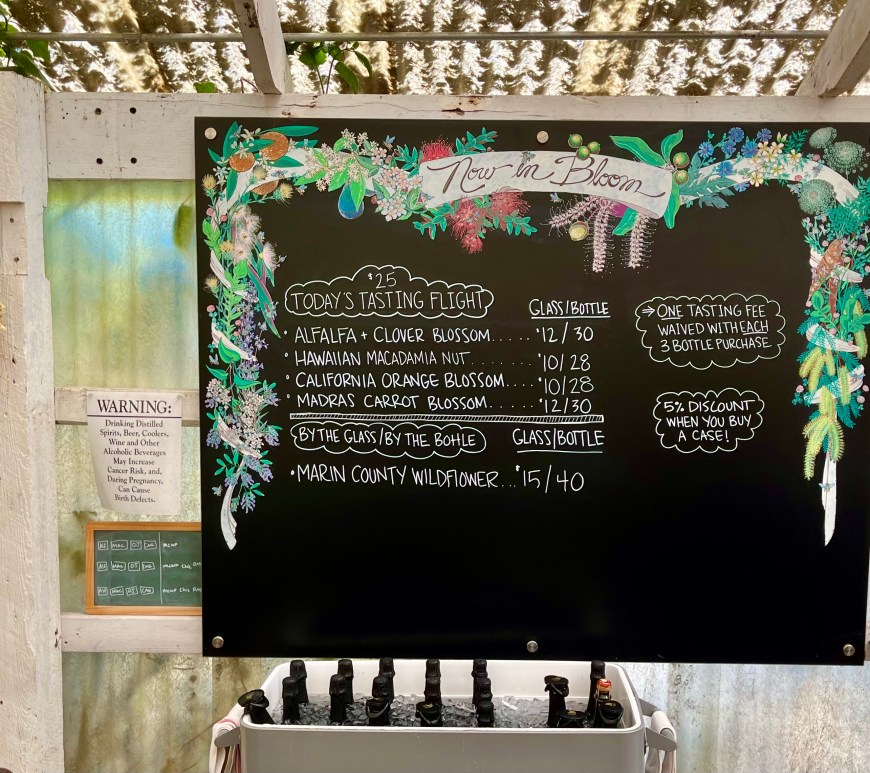 Now in Bloom
$25
TODAY'S TASTING FLIGHT
GLASS/BOTTLE
• ALFALFA + CLOVER BLOSSOM..... $12/30
• HAWAIIAN MACADAMIA NUT....... $10/28
• CALIFORNIA ORANGE BLOSSOM.... $10/28
• MADRAS CARROT BLOSSOM...... $12/30
BY THE GLASS/BY THE BOTTLE
GLASS/BOTTLE
• MARIN COUNTY WILDFLOWER... $15/40
→ ONE TASTING FEE
WAIVED WITH EACH
3 BOTTLE PURCHASE
5% DISCOUNT
WHEN YOU BUY
A CASE!
WARNING:
Drinking Distilled
Spirits, Beer, Coolers,
Wine and Other
Alcoholic Beverages
May Increase
Cancer Risk, and,
During Pregnancy,
Can Cause
Birth Defects.
MAC OJ
MAC OJ
MAC OJ CAR